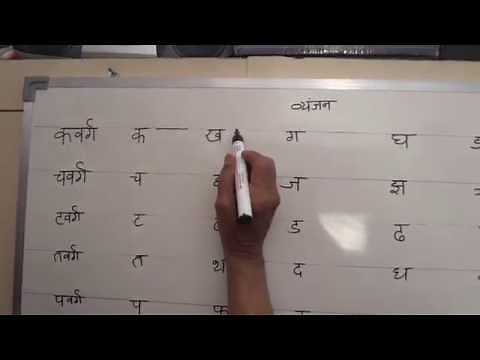 व्यंजन
कवर्ग क — ख ग घ
चवर्ग च ज झ
टवर्ग ट ड ढ
तवर्ग त थ द ध
पवर्ग प